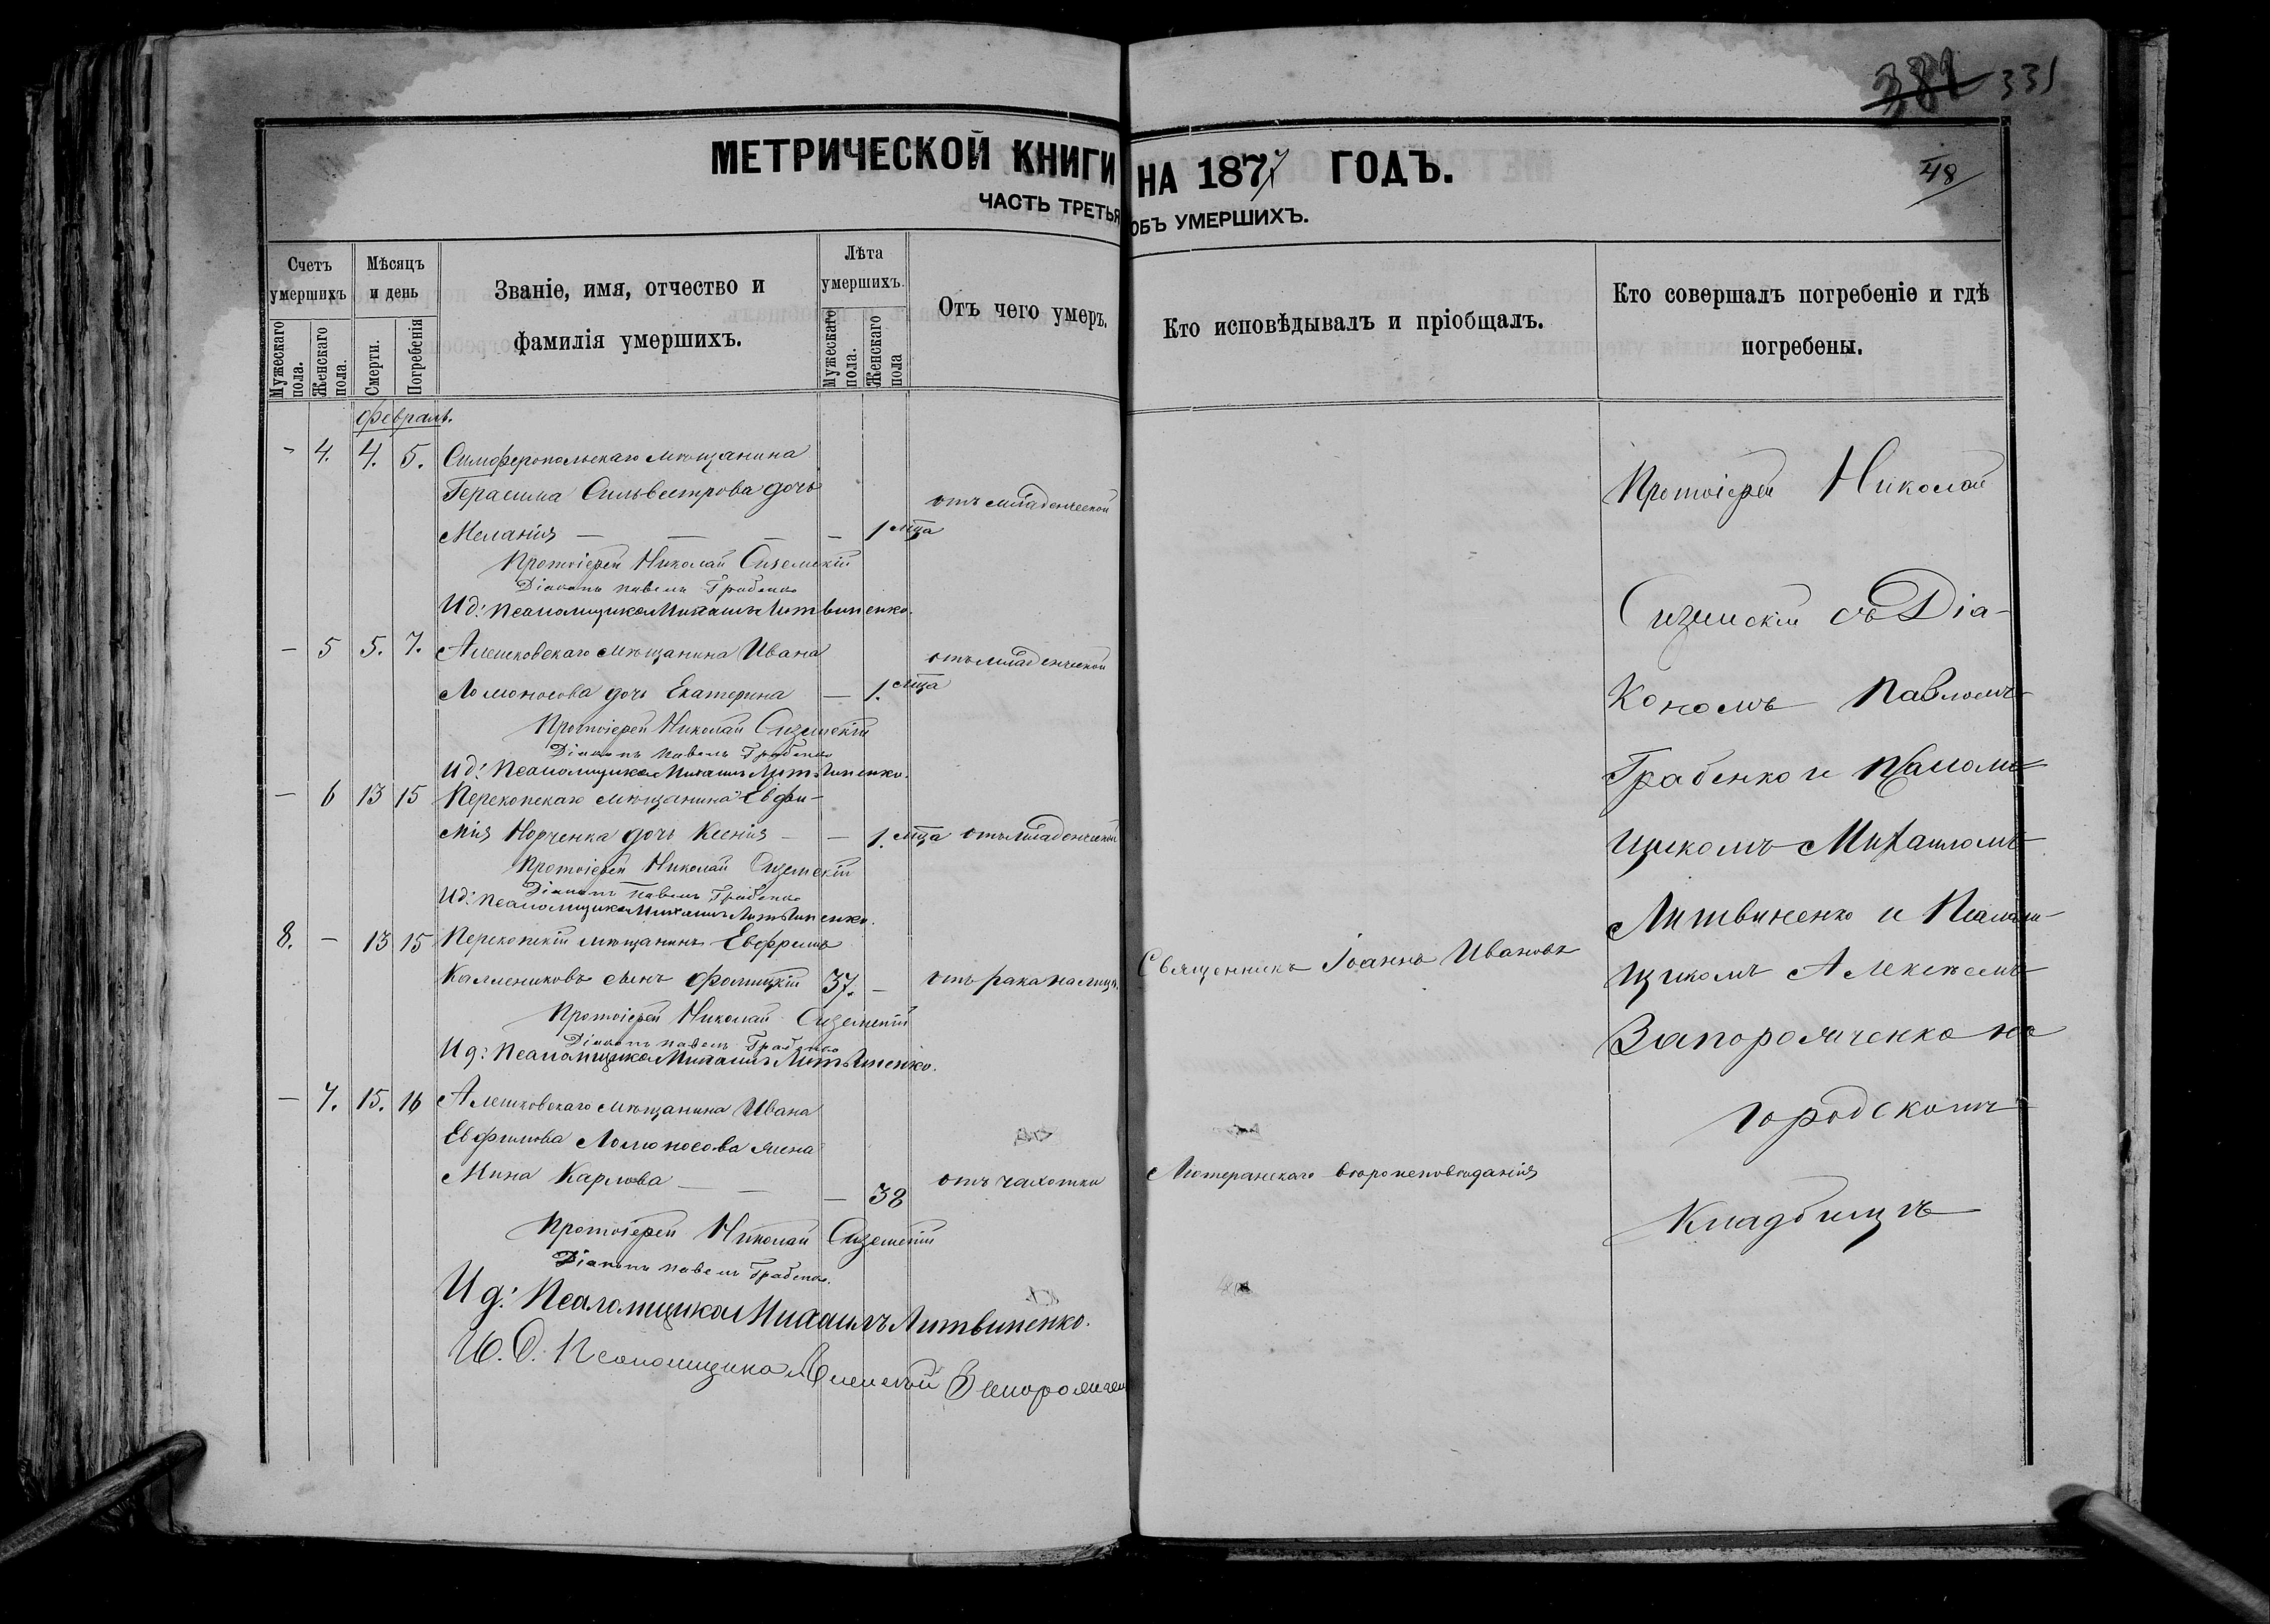 381 331
МЕТРИЧЕСКОЙ КНИГИ НА 1877 ГОДЪ.
48
ЧАСТЬ ТРЕТЬЯ ОБЪ УМЕРШИХЪ.
Счетъ умершихъ
Мужескаго пола.
Женскаго пола.
Мѣсяцъ и день
Смерти.
Погребенія
Званіе, имя, отчество и
фамилія умершихъ.
Лѣта умершихъ.
Мужескаго пола.
Женскаго пола
Отъ чего умеръ.
Кто исповѣдывалъ и пріобщалъ.
Кто совершалъ погребеніе и гдѣ
погребены.
Февраль.
- 4. 4. 5. Симферопольскаго мѣщанина
Герасима Сильвестрова дочь
Меланія — — — — 1 мца отъ младенческой
Протоіерей Николай Сиземскій
Діаконъ Павелъ Грабенко
И д: Псаломщика Михаилъ Литвиненко.
— 5 5. 7. Алешковскаго мѣщанина Ивана
Ломоносова дочь Екатерина — 1. мца отъ младенческой
Протоіерей Николай Сиземскій
Діаконъ Павелъ Грабенко
И д: Псаломщика Михаилъ Литвиненко.
— 6 13 15 Перекопскаго мѣщанина Евфи-
мія Норченка дочь Ксенія — — 1. мца отъ младенческой
Протоіерей Николай Сиземскій
Діаконъ Павелъ Грабенко
И д: Псаломщика Михаилъ Литвиненко.
8. — 13 15 Перекопскій мѣщанинъ Евфримъ
Каллениковъ сынъ Фомицкій 37. — отъ рака на лицѣ. Священникъ Іоаннъ Ивановъ
Протоіерей Николай Сиземскій
Діаконъ Павелъ Грабенко
И д: Псаломщика Михаилъ Литвиненко.
— 7. 15. 16 Алешковскаго мѣщанина Ивана
Евфимова Ломоносова жена
Мина Карлова — — — 38 отъ чахотки Лютеранскаго вѣроисповѣданія
Протоіерей Николай Сиземскій
Діаконъ Павелъ Грабенко.
И д: Псаломщика Михаилъ Литвиненко.
И. Д. Псаломщика Алексѣй Запорожчен
Протоіерей Николай
Сиземскій съ Діа-
кономъ Павломъ
Грабенко и Псалом-
щикомъ Михаиломъ
Литвиненко и Псалом-
щикомъ Алексѣемъ
Запорожченко на
городскомъ
кладбищѣ